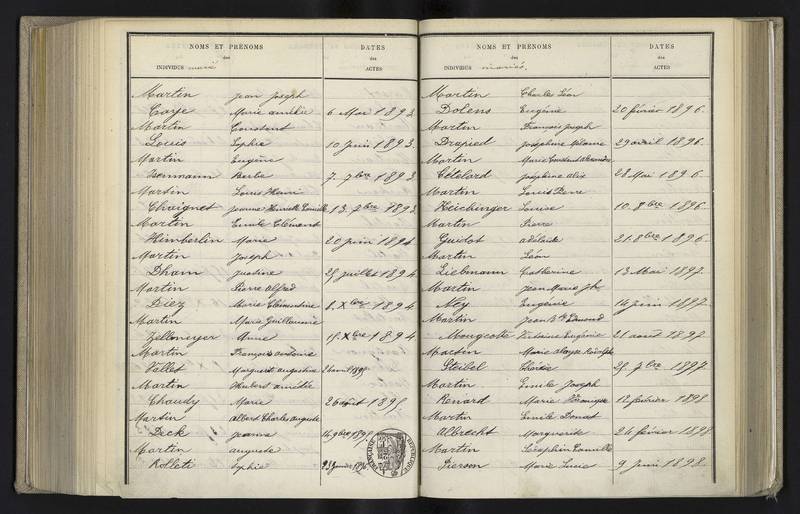 NOMS ET PRÉNOMS
des
INDIVIDUS marié
DATES
des
ACTES
Martin Jean Joseph
Caye Marie amélie 6 Mai 1893
Martin Constant
Louis Sophie 10 Juin 1893.
Martin Eugène
Berba 7. 7bre 1893
Martin Louis Henri
Chaignet Jeanne Henriette 13. 7bre 1893
Martin Emile Clément
Himberlin Marie 20 juin 1894
Martin Joseph
Dham Justine 25 juillet 1894
Martin Pierre Alfred
Diez Marie Clémentine 8. Xbre 1894
Martin Marie Guillaume
Zellmeyer Anne 15. Xbre 1894
Martin François antoine
Vallet Marguerite augustine 2 avril 1895
Martin Hubert amédée
Chaudy Marie 26 août 1895
Martin Albert Charles auguste
Dick Jeanne 14 9bre 1895
Martin auguste
Rolleti Sophie 23 Janvier 1896
NOMS ET PRÉNOMS
des
INDIVIDUS mariés.
DATES
des
ACTES
Martin Charles Léon
Dolens Eugénie 20 février 1896.
Martin François joseph
Drapied Joséphine 29 avril 1896.
Martin Marie Constant
Cételard Joséphine alix 28 Mai 1896
Martin Louis Pierre
Heichinger Louise 10. 8bre 1896.
Martin Pierre
Guidot adélaïde 21. 8bre 1896.
Martin Léon
Liebmann Catherine 13 Mai 1897.
Martin Jean Marie Jh
Ney Eugénie 14 juin 1897.
Martin Jean Bte Edmond
Mougeotte Eugénie 21 août 1897
Martin Marie
Steibel 25. 7bre 1897
Martin Emile Joseph
Renard Marie Véronique 12 février 1898
Martin Emile Donat
Albrecht Marguerite 24 février 1898
Martin Séraphin Camille
Pierson Marie Lucie 9 Juin 1898.